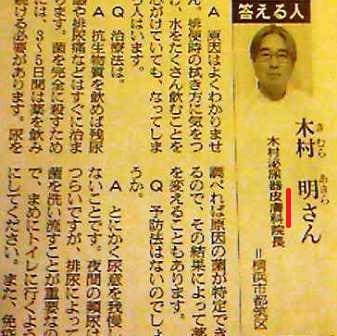 答える人
木村 明さん
きむら あきら
木村泌尿器皮膚科院長
＝横浜市都筑区
A 原因はよくわかりませ
ん。排便時の拭き方に気をつ
け、水をたくさん飲むことを
心がけていても、なってしま
う人はいます。
Q 治療法は。
A 抗生物質を飲めば残尿
感や排尿痛などはすぐに治ま
ります。菌を完全に殺すため
には、3～5日間は薬を飲み
続ける必要があります。尿を
調べれば原因の菌が特定でき
るので、その結果によって薬
を変えることもあります。
Q 予防法はないのでしょ
うか。
A とにかく尿意を我慢し
ないことです。夜間の頻尿は
つらいですが、排尿によって
菌を洗い流すことが重要なの
で、まめにトイレに行くよう
にしてください。また、免疫